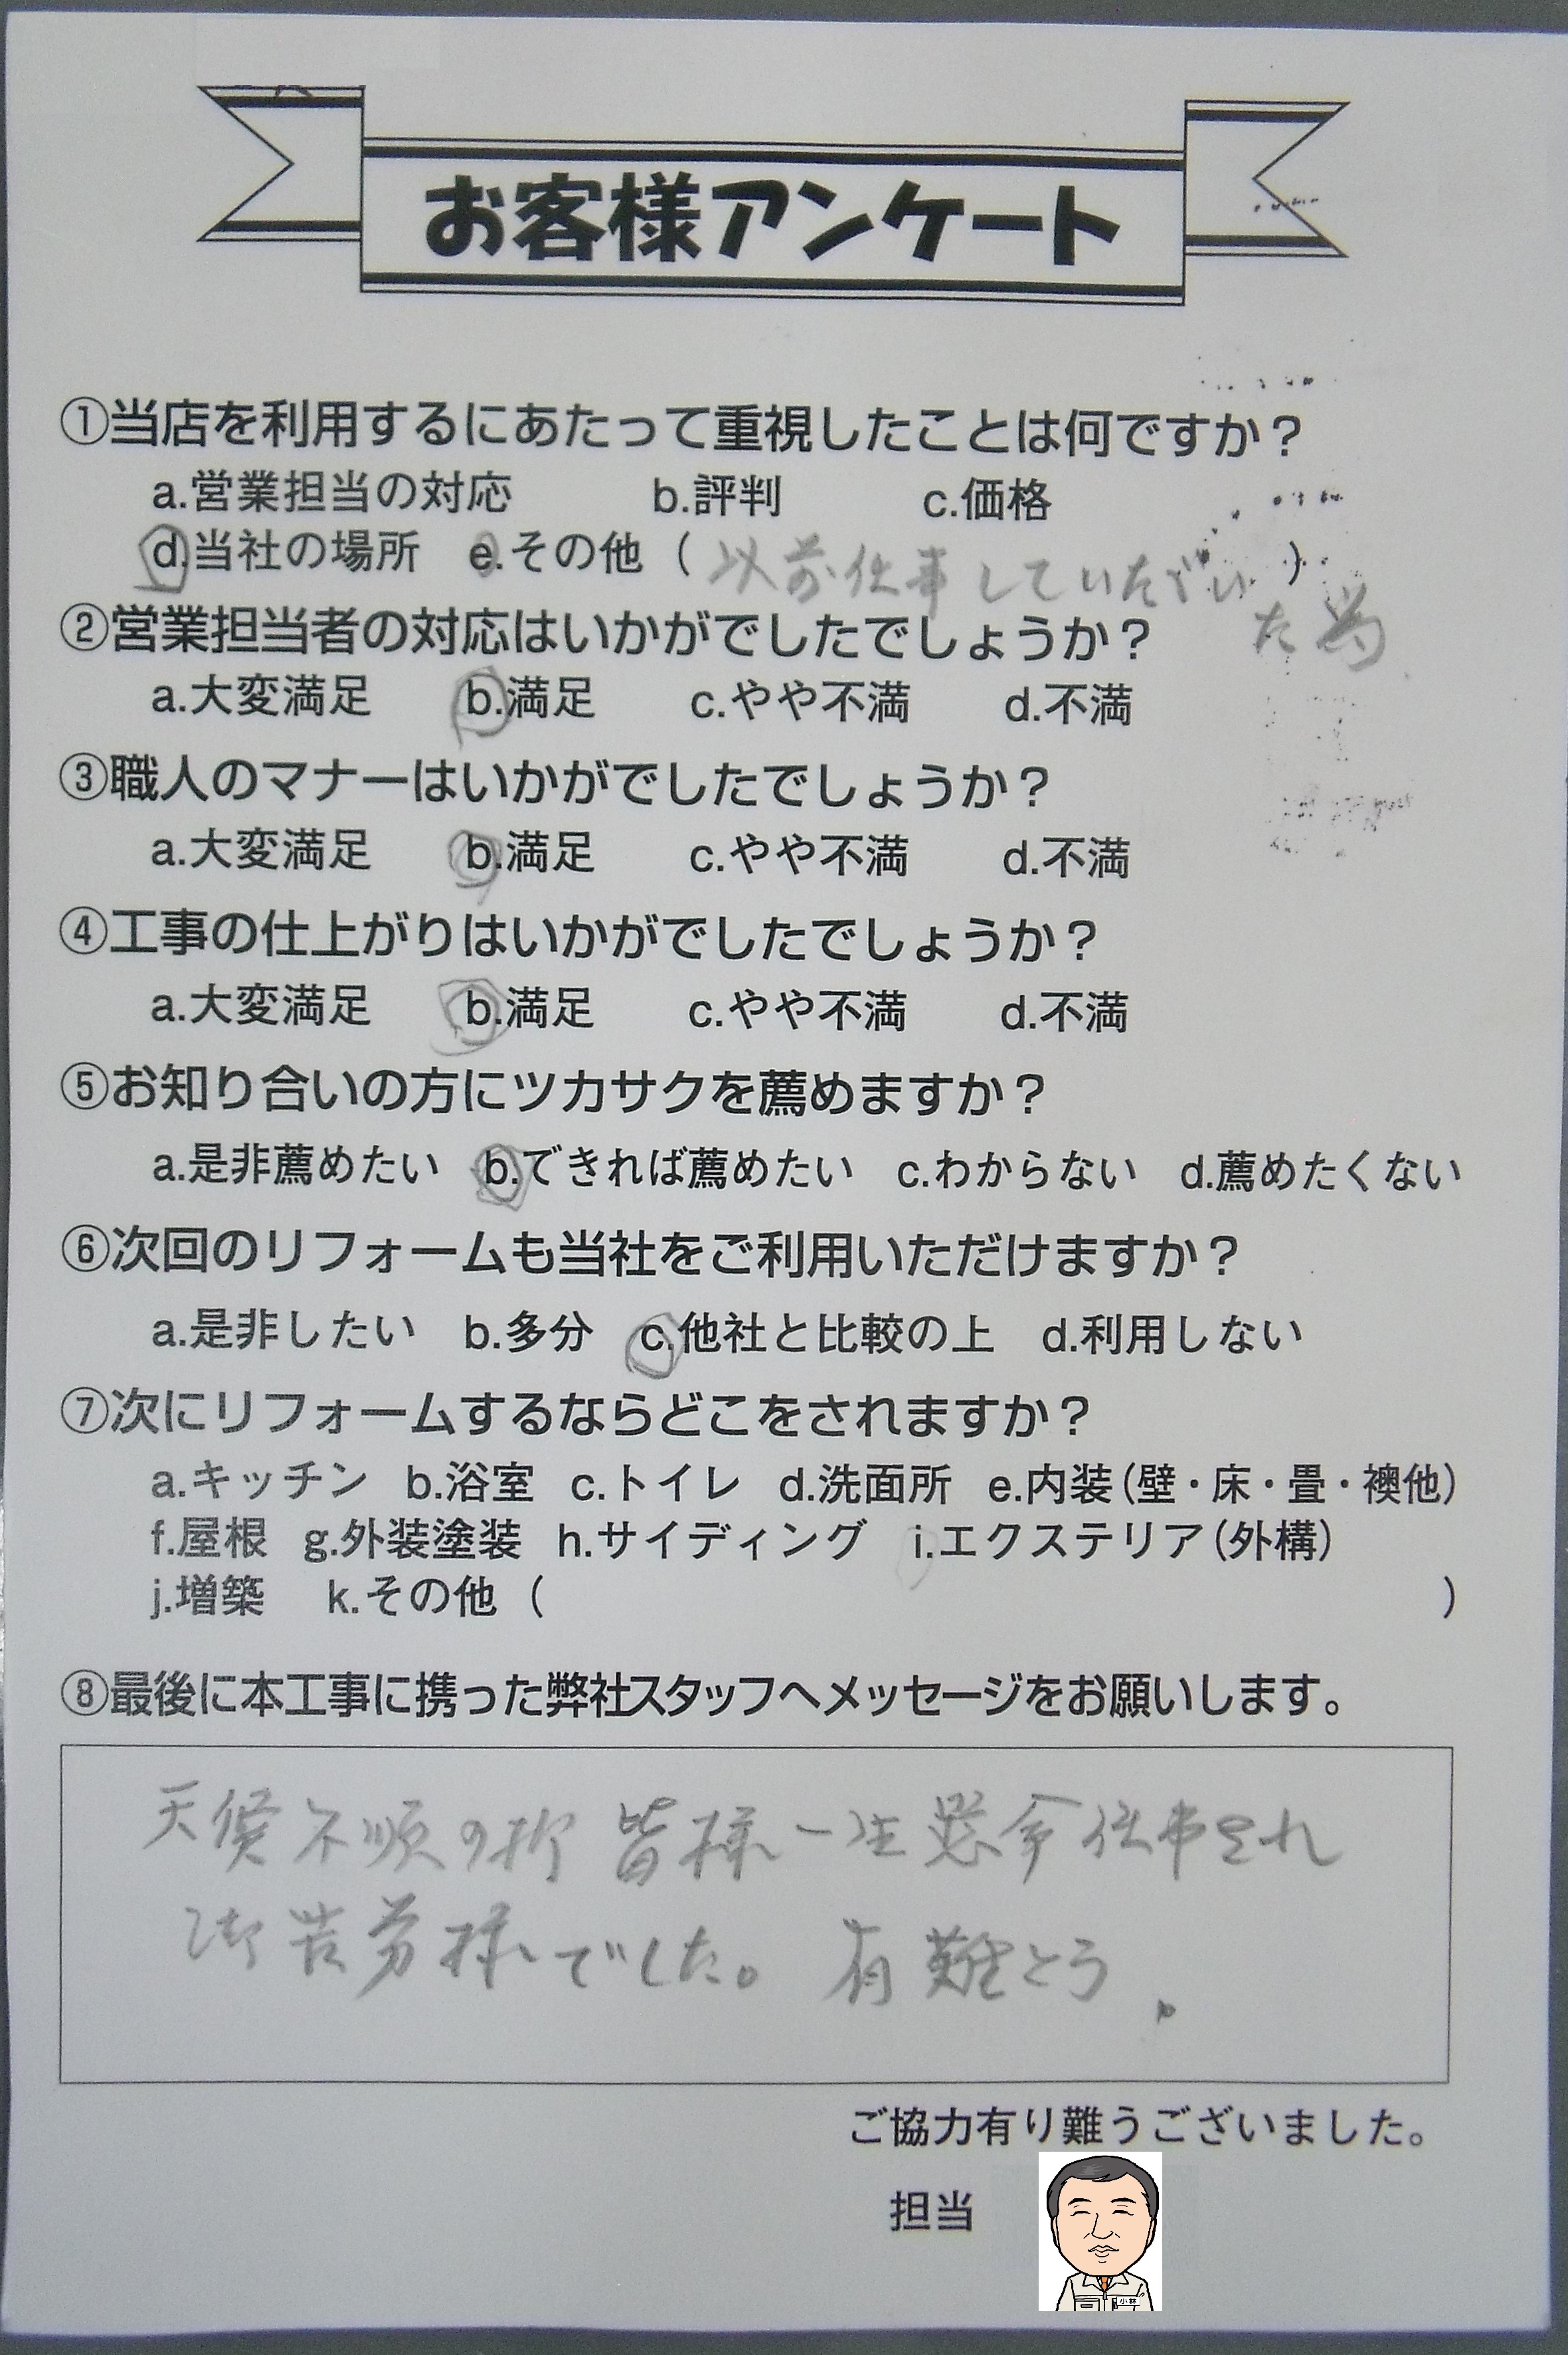 お客様アンケート
①当店を利用するにあたって重視したことは何ですか？
a.営業担当の対応 b.評判 c.価格
d.当社の場所 e.その他（以前仕事していただい）
た為
②営業担当者の対応はいかがでしたでしょうか？
a.大変満足 b.満足 c.やや不満 d.不満
③職人のマナーはいかがでしたでしょうか？
a.大変満足 b.満足 c.やや不満 d.不満
④工事の仕上がりはいかがでしたでしょうか？
a.大変満足 b.満足 c.やや不満 d.不満
⑤お知り合いの方にツカサクを薦めますか？
a.是非薦めたい b.できれば薦めたい c.わからない d.薦めたくない
⑥次回のリフォームも当社をご利用いただけますか？
a.是非したい b.多分 c.他社と比較の上 d.利用しない
⑦次にリフォームするならどこをされますか？
a.キッチン b.浴室 c.トイレ d.洗面所 e.内装（壁・床・畳・襖他）
f.屋根 g.外装塗装 h.サイディング i.エクステリア（外構）
j.増築 k.その他（ ）
⑧最後に本工事に携った弊社スタッフへメッセージをお願いします。
天候不順の折 皆様一生懸命仕事され
御苦労様でした。 有難とう.
ご協力有り難うございました。
担当
小林